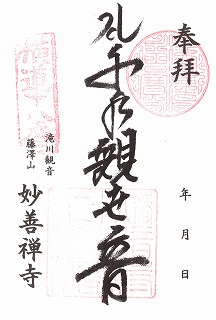 奉拝
年 月 日
千手観世音
滝川観音
藤澤山
妙善禅寺